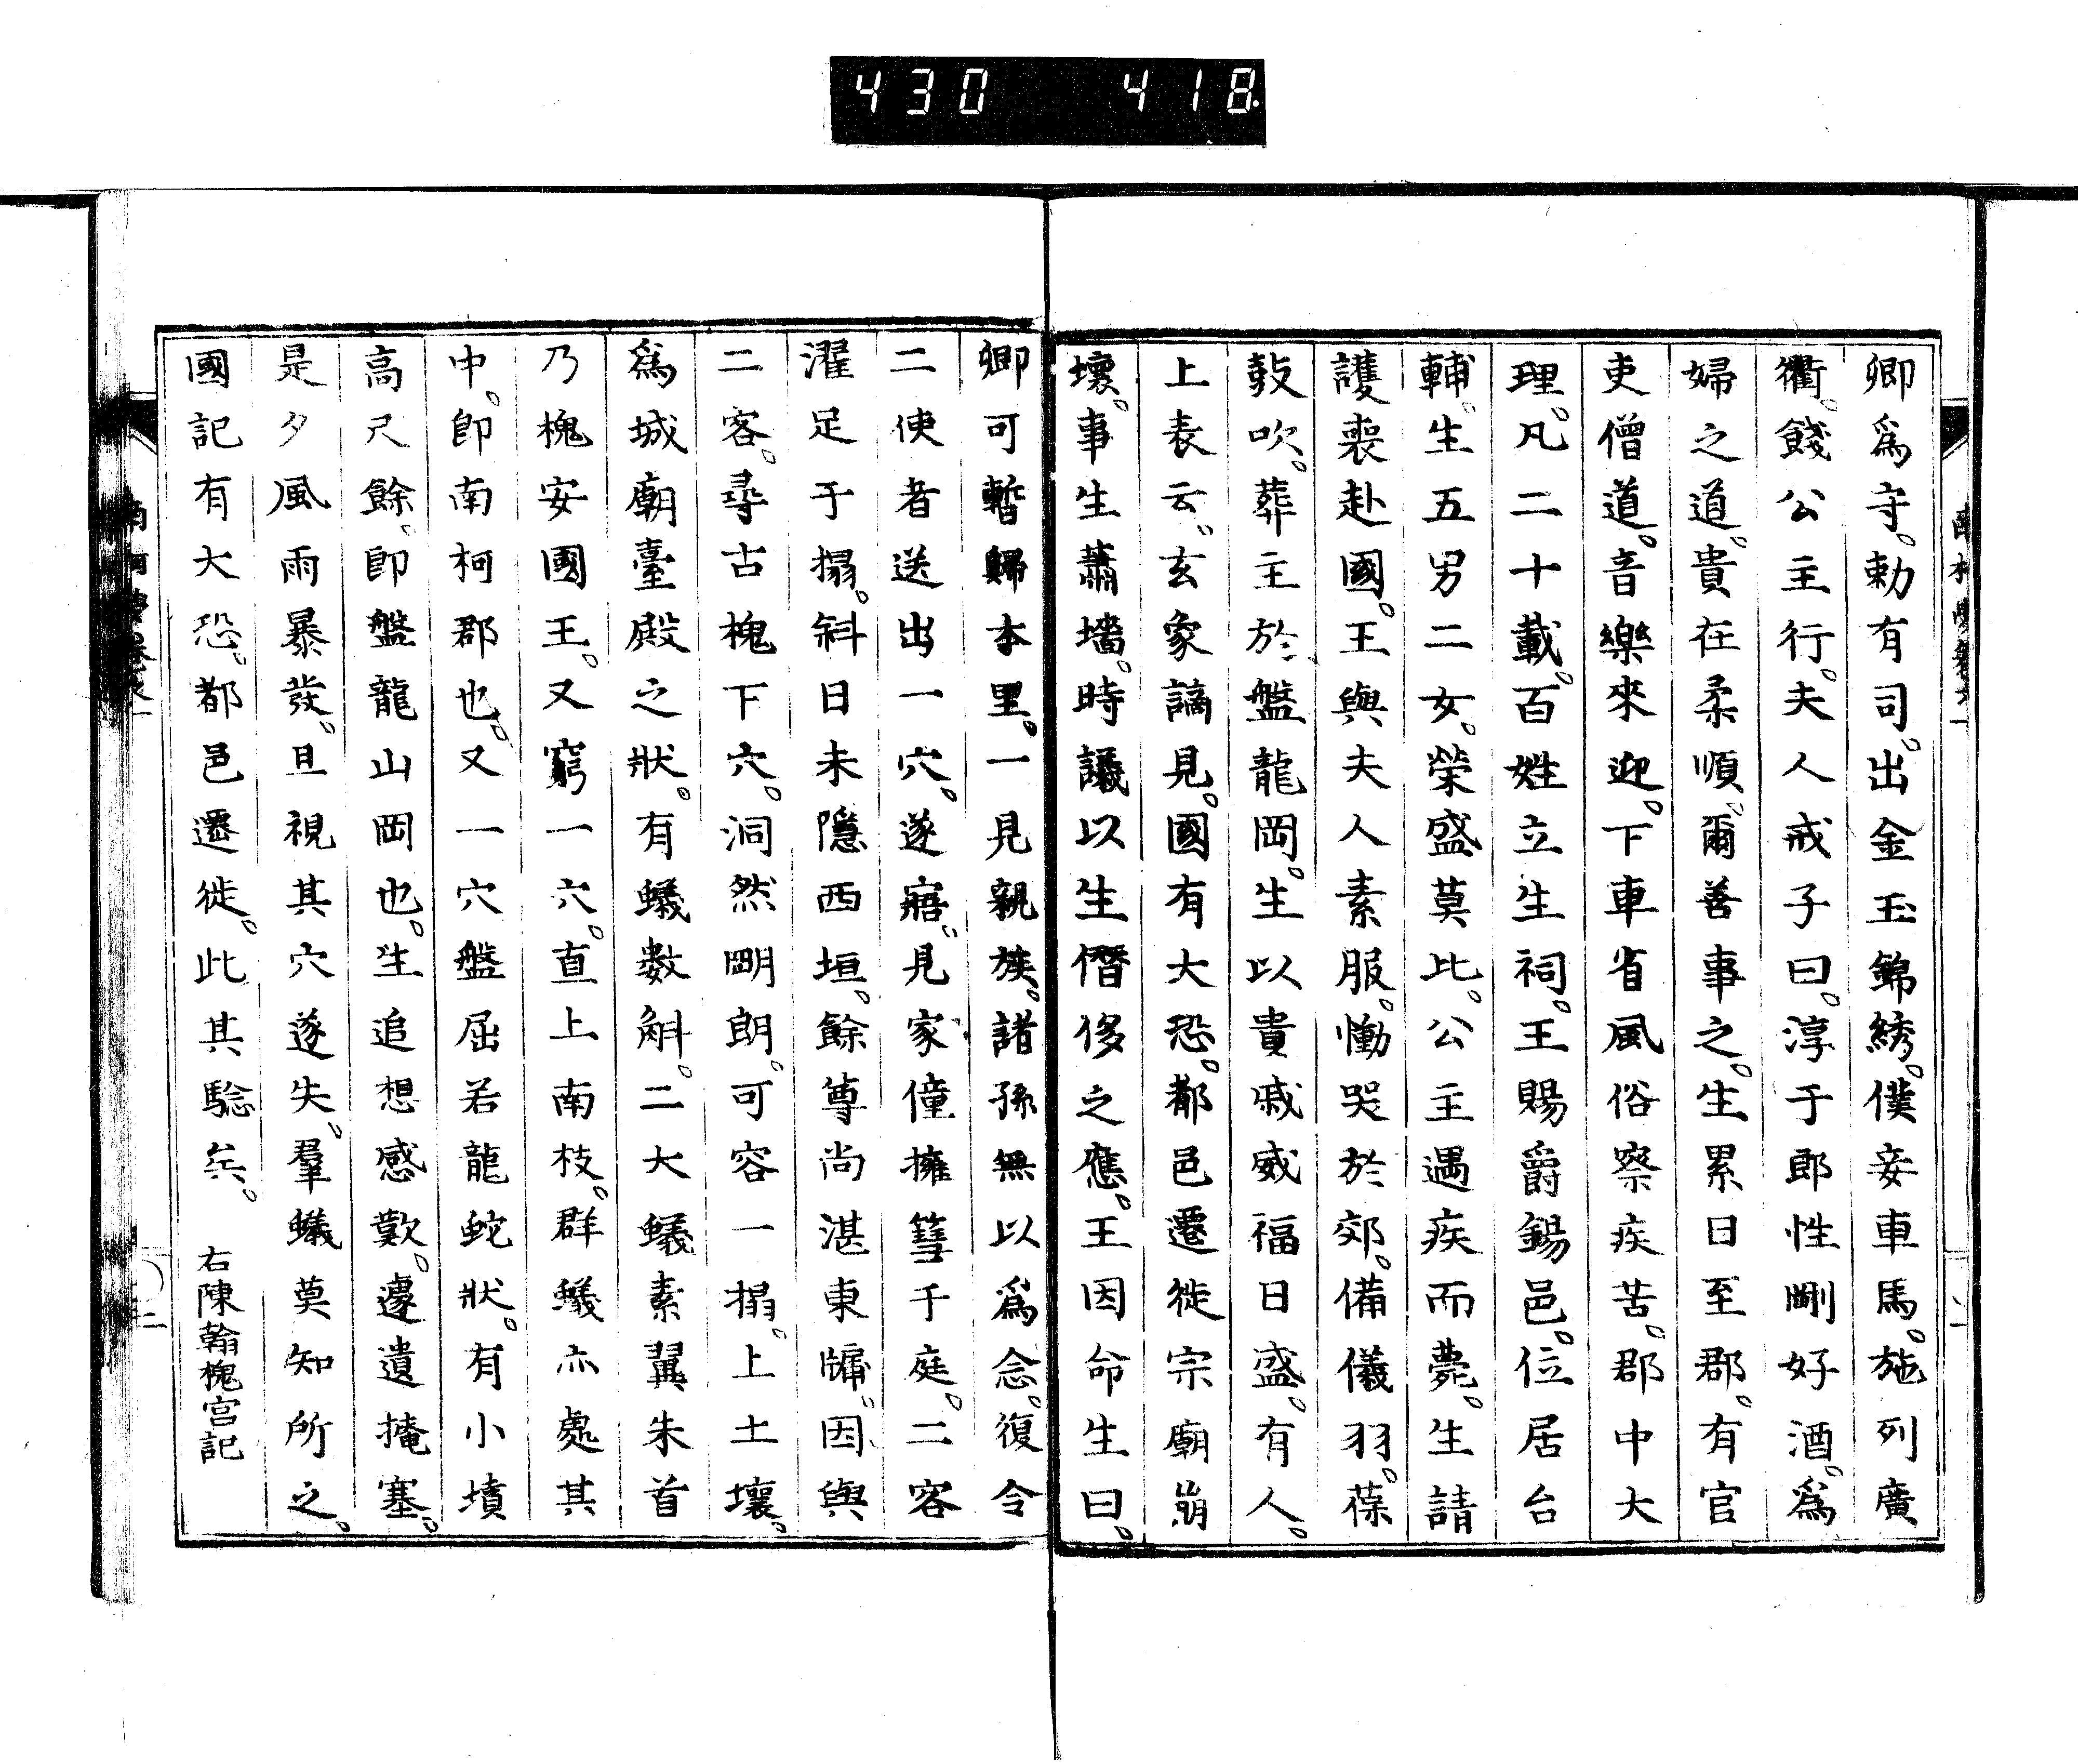 430 418
卿爲守。勅有司。出金玉錦綉。僕妾車馬。施列廣
衢。餞公主行。夫人戒子曰。淳于郎性剛好酒。爲
婦之道。貴在柔順。爾善事之。生累日至郡。有官
吏僧道。音樂來迎。下車省風俗察疾苦。郡中大
理。凡二十載。百姓立生祠。王賜爵錫邑。位居台
輔。生五男二女。榮盛莫比。公主遇疾而薨。生請
護喪赴國。王與夫人素服。慟哭於郊。備儀羽。葆
鼓吹。葬主於盤龍岡。生以貴戚威福日盛。有人。
上表云。玄象謫見。國有大恐。都邑遷徙宗廟崩
壞。事生蕭墻。時議以生僭侈之應。王因命生曰。
卿可暫歸本里。一見親族。諸孫無以爲念。復令
二使者送出一穴。遂寤。見家僮擁篲于庭。二客
濯足于榻。斜日未隱西垣。餘尊尚湛東牖。因與
二客。尋古槐下穴。洞然明朗。可容一榻。上土壤。
爲城廟臺殿之狀。有蟻數斛。二大蟻素翼朱首
乃槐安國王。又窮一穴。直上南枝。群蟻亦處其
中。卽南柯郡也。又一穴盤屈若龍蛇狀。有小墳
高尺餘。卽盤龍山岡也。生追想感歎。遽遺掩塞。
是夕風雨暴發。旦視其穴遂失。羣蟻莫知所之。
國記有大恐。都邑遷徙。此其驗矣。 右陳翰槐宮記